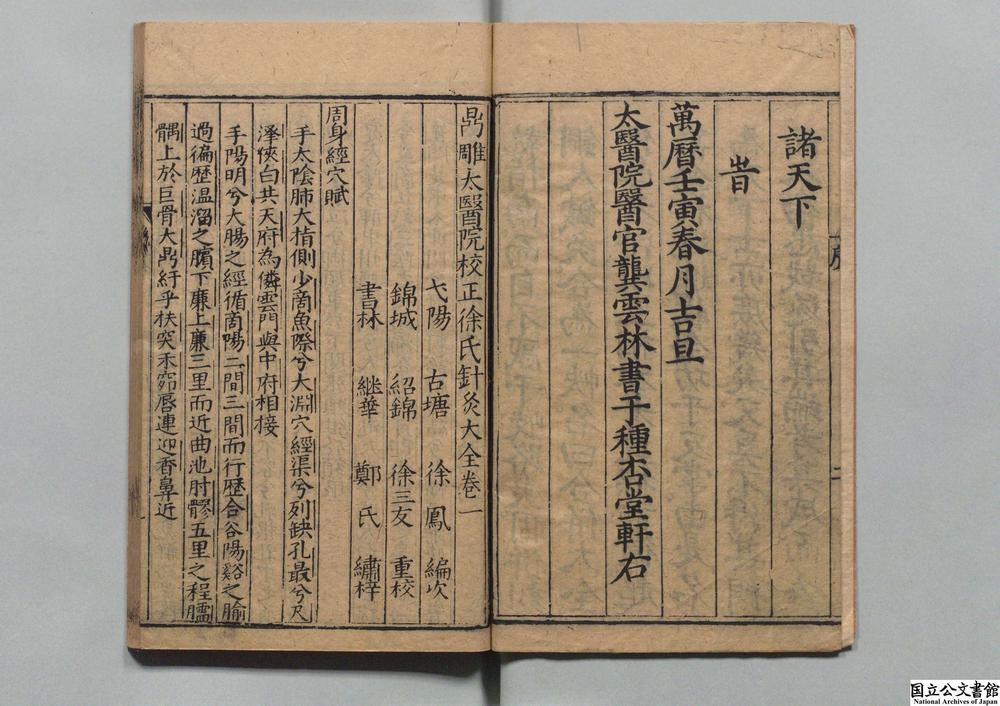 諸天下
旹
萬曆壬寅春月吉旦
太醫院醫官龔雲林書于種杏堂軒右
序
二
鼎雕太醫院校正徐氏針灸大全卷一
弋陽 古塘 徐鳳 編次
錦城 紹錦 徐三友 重校
書林 継華 鄭氏 繡梓
周身經穴賦
手太陰肺大指側少商魚際兮大淵穴經渠兮列缺孔最兮尺
澤俠白共天府為儔雲門與中府相接
手陽明兮大腸之經循商陽二間三間而行歷合谷陽谿之腧
過徧歷温溜之濱下廉上廉三里而近曲池肘髎五里之程臑
髃上於巨骨大鼎紆乎扶突禾窌唇連迎香鼻近
国立公文書館
National Archives of Japan